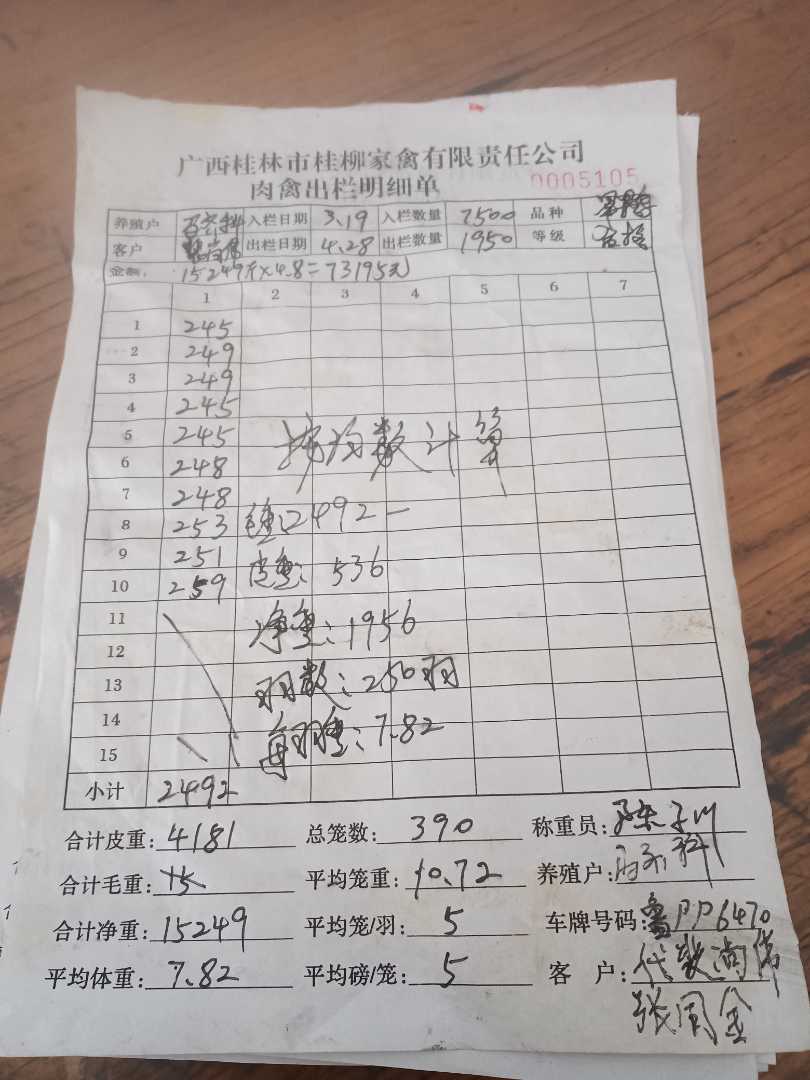 广西桂林市桂柳家禽有限责任公司
肉禽出栏明细单 0005105
养殖户 入栏日期 3.19 入栏数量 7500 品种
客户 出栏日期 4.28 出栏数量 1950 等级 合格
金额: 15249斤×4.8=73195元
1 2 3 4 5 6 7
1 245
2 249
3 249
4 245
5 245 按均数计算
6 248
7 248
8 253 毛重:2492
9 251 皮重: 536
10 259
11 净重:1956
12
13 羽数:250羽
14 每羽重:7.82
15
小计 2492
合计皮重: 4181 总笼数: 390 称重员:
合计毛重: 平均笼重: 10.72 养殖户:
合计净重: 15249 平均笼/羽: 5 车牌号码:鲁PP6470
平均体重: 7.82 平均磅/笼: 5 客 户:代数尚伟
张同金